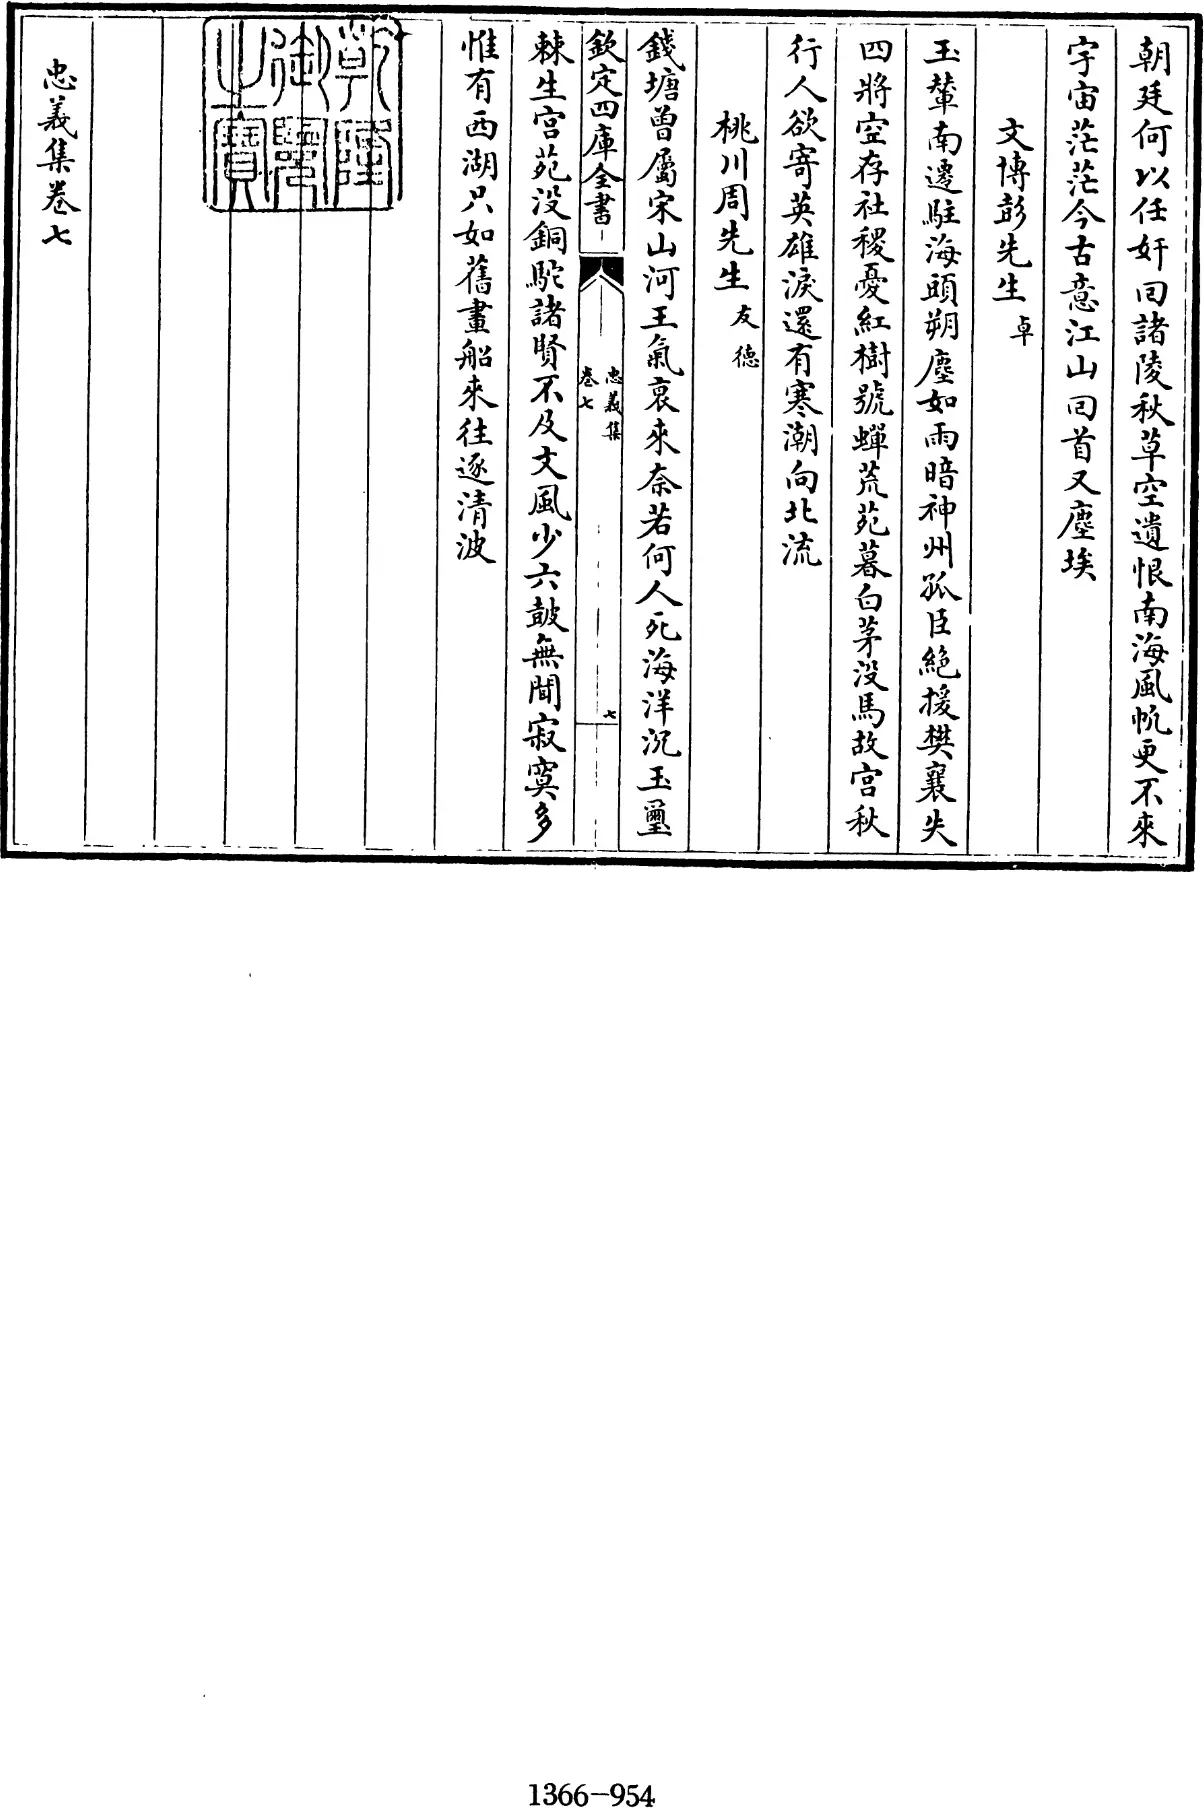 朝廷何以任奸囘諸陵秋草空遺恨南海風帆更不來
宇宙茫茫今古意江山囘首又塵埃
文博彭先生卓
玉輦南遷駐海頭朔塵如雨暗神州孤臣絶援樊襄失
四將空存社稷憂紅樹號蟬荒苑暮白茅没馬故宫秋
行人欲寄英雄淚還有寒潮向北流
桃川周先生友德
錢塘曾屬宋山河王氣衰來奈若何人死海洋沉玉璽
欽定四庫全書
忠義集
卷七
七
棘生宫苑没銅駝諸賢不及文風少六鼓無聞寂寞多
惟有西湖只如舊畫船來往逐清波
乾隆御覽之寶
忠義集卷七
1366-954